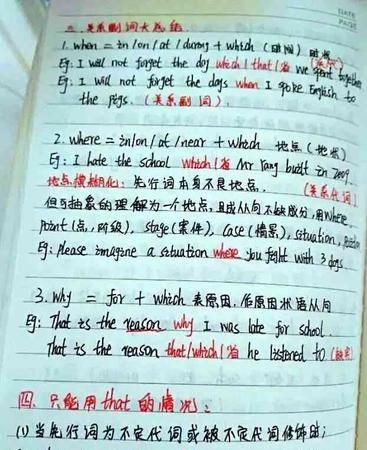 三. 关系副词大总结
1. when = in/on/at/during + which (时间) 时状
Eg: I will not forget the day which/that/省 we spent together
Eg: I will not forget the days when I spoke English to
the pigs. (关系副词).
2. where = in/on/at/near + which 地点 (地状)
Eg: I hate the school which/省 Mr Yang built in 2009.
地点模糊化: 先行词本身不是地点, (关系代词)
但可抽象的理解为一个地点, 且从句不缺成分, 用where.
Point (点, 阶段), stage (), case (情景), situation, position
Eg: Please imagine a situation where you fight with 3 dogs
3. why = for + which 表原因, 作原因状语从句
Eg: That is the reason why I was late for school
That is the reason that/which/省 he listened to (缺宾)
四. 只能用that的情况:
(1) 当先行词为不定代词或被不定代词修饰时;